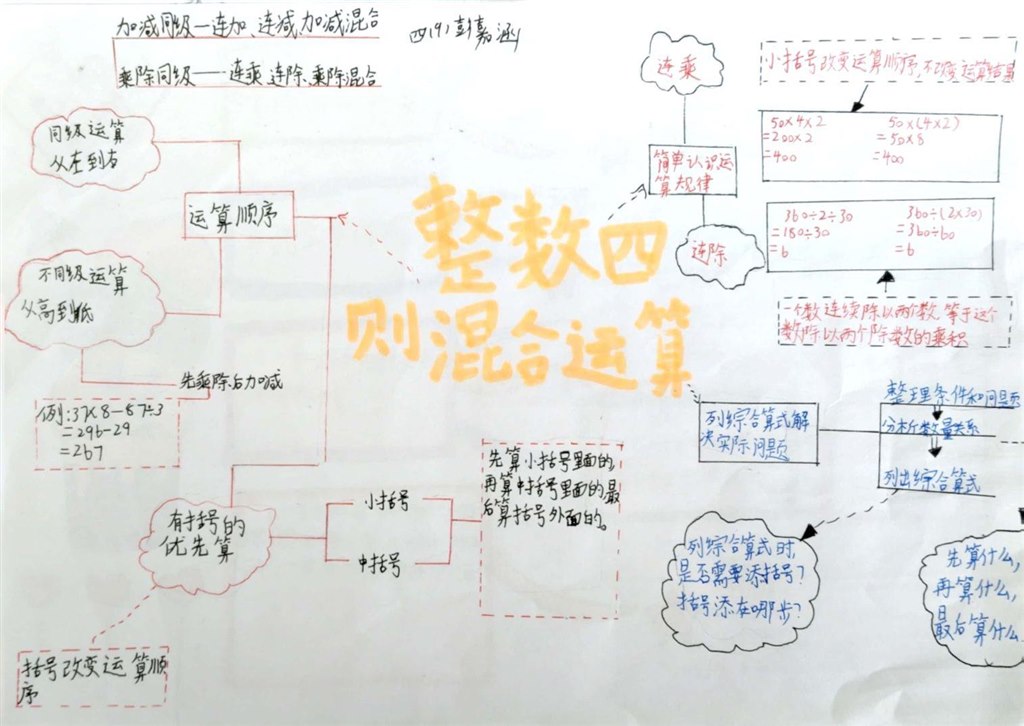 加减同级—连加、连减、加减混合
四(9)彭嘉涵
乘除同级——连乘、连除、乘除混合
同级运算
从左到右
运算顺序
不同级运算
从高到低
先乘除后加减
例:37×8-87÷3
=296-29
=267
有括号的
优先算
小括号
中括号
先算小括号里面的,
再算中括号里面的,最
后算括号外面的。
括号改变运算顺
序
整数四
则混合运算
连乘
简单认识运
算规律
连除
小括号改变运算顺序,不改变运算结果
50×4×2
=200×2
=400
50×(4×2)
=50×8
=400
360÷2÷30
=180÷30
=6
360÷(2×30)
=360÷60
=6
一个数连续除以两个数,等于这个
数除以两个除数的乘积
列综合算式解
决实际问题
整理条件和问题
分析数量关系
列出综合算式
列综合算式时,
是否需要添括号?
括号添在哪步?
先算什么,
再算什么,
最后算什么